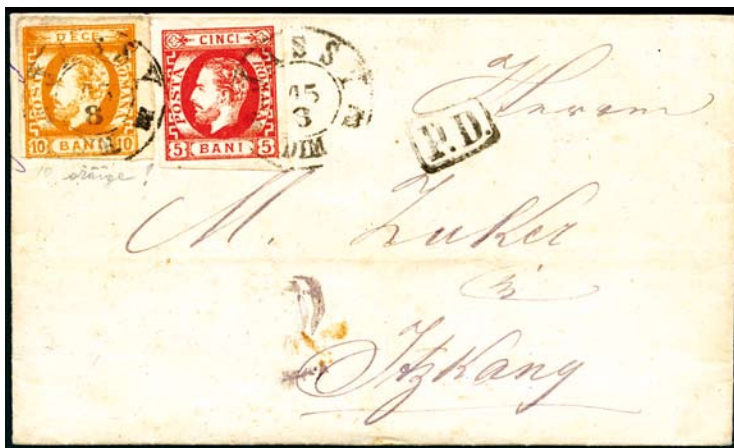 DECE
POSTA ROMANA
10 BANI 10
CINCI
POSTA ROMANA
5 BANI 5
JASSY
15
8
DIM
P.D.
10 orange!
Herrn
M. Zuker
in
Itzkany